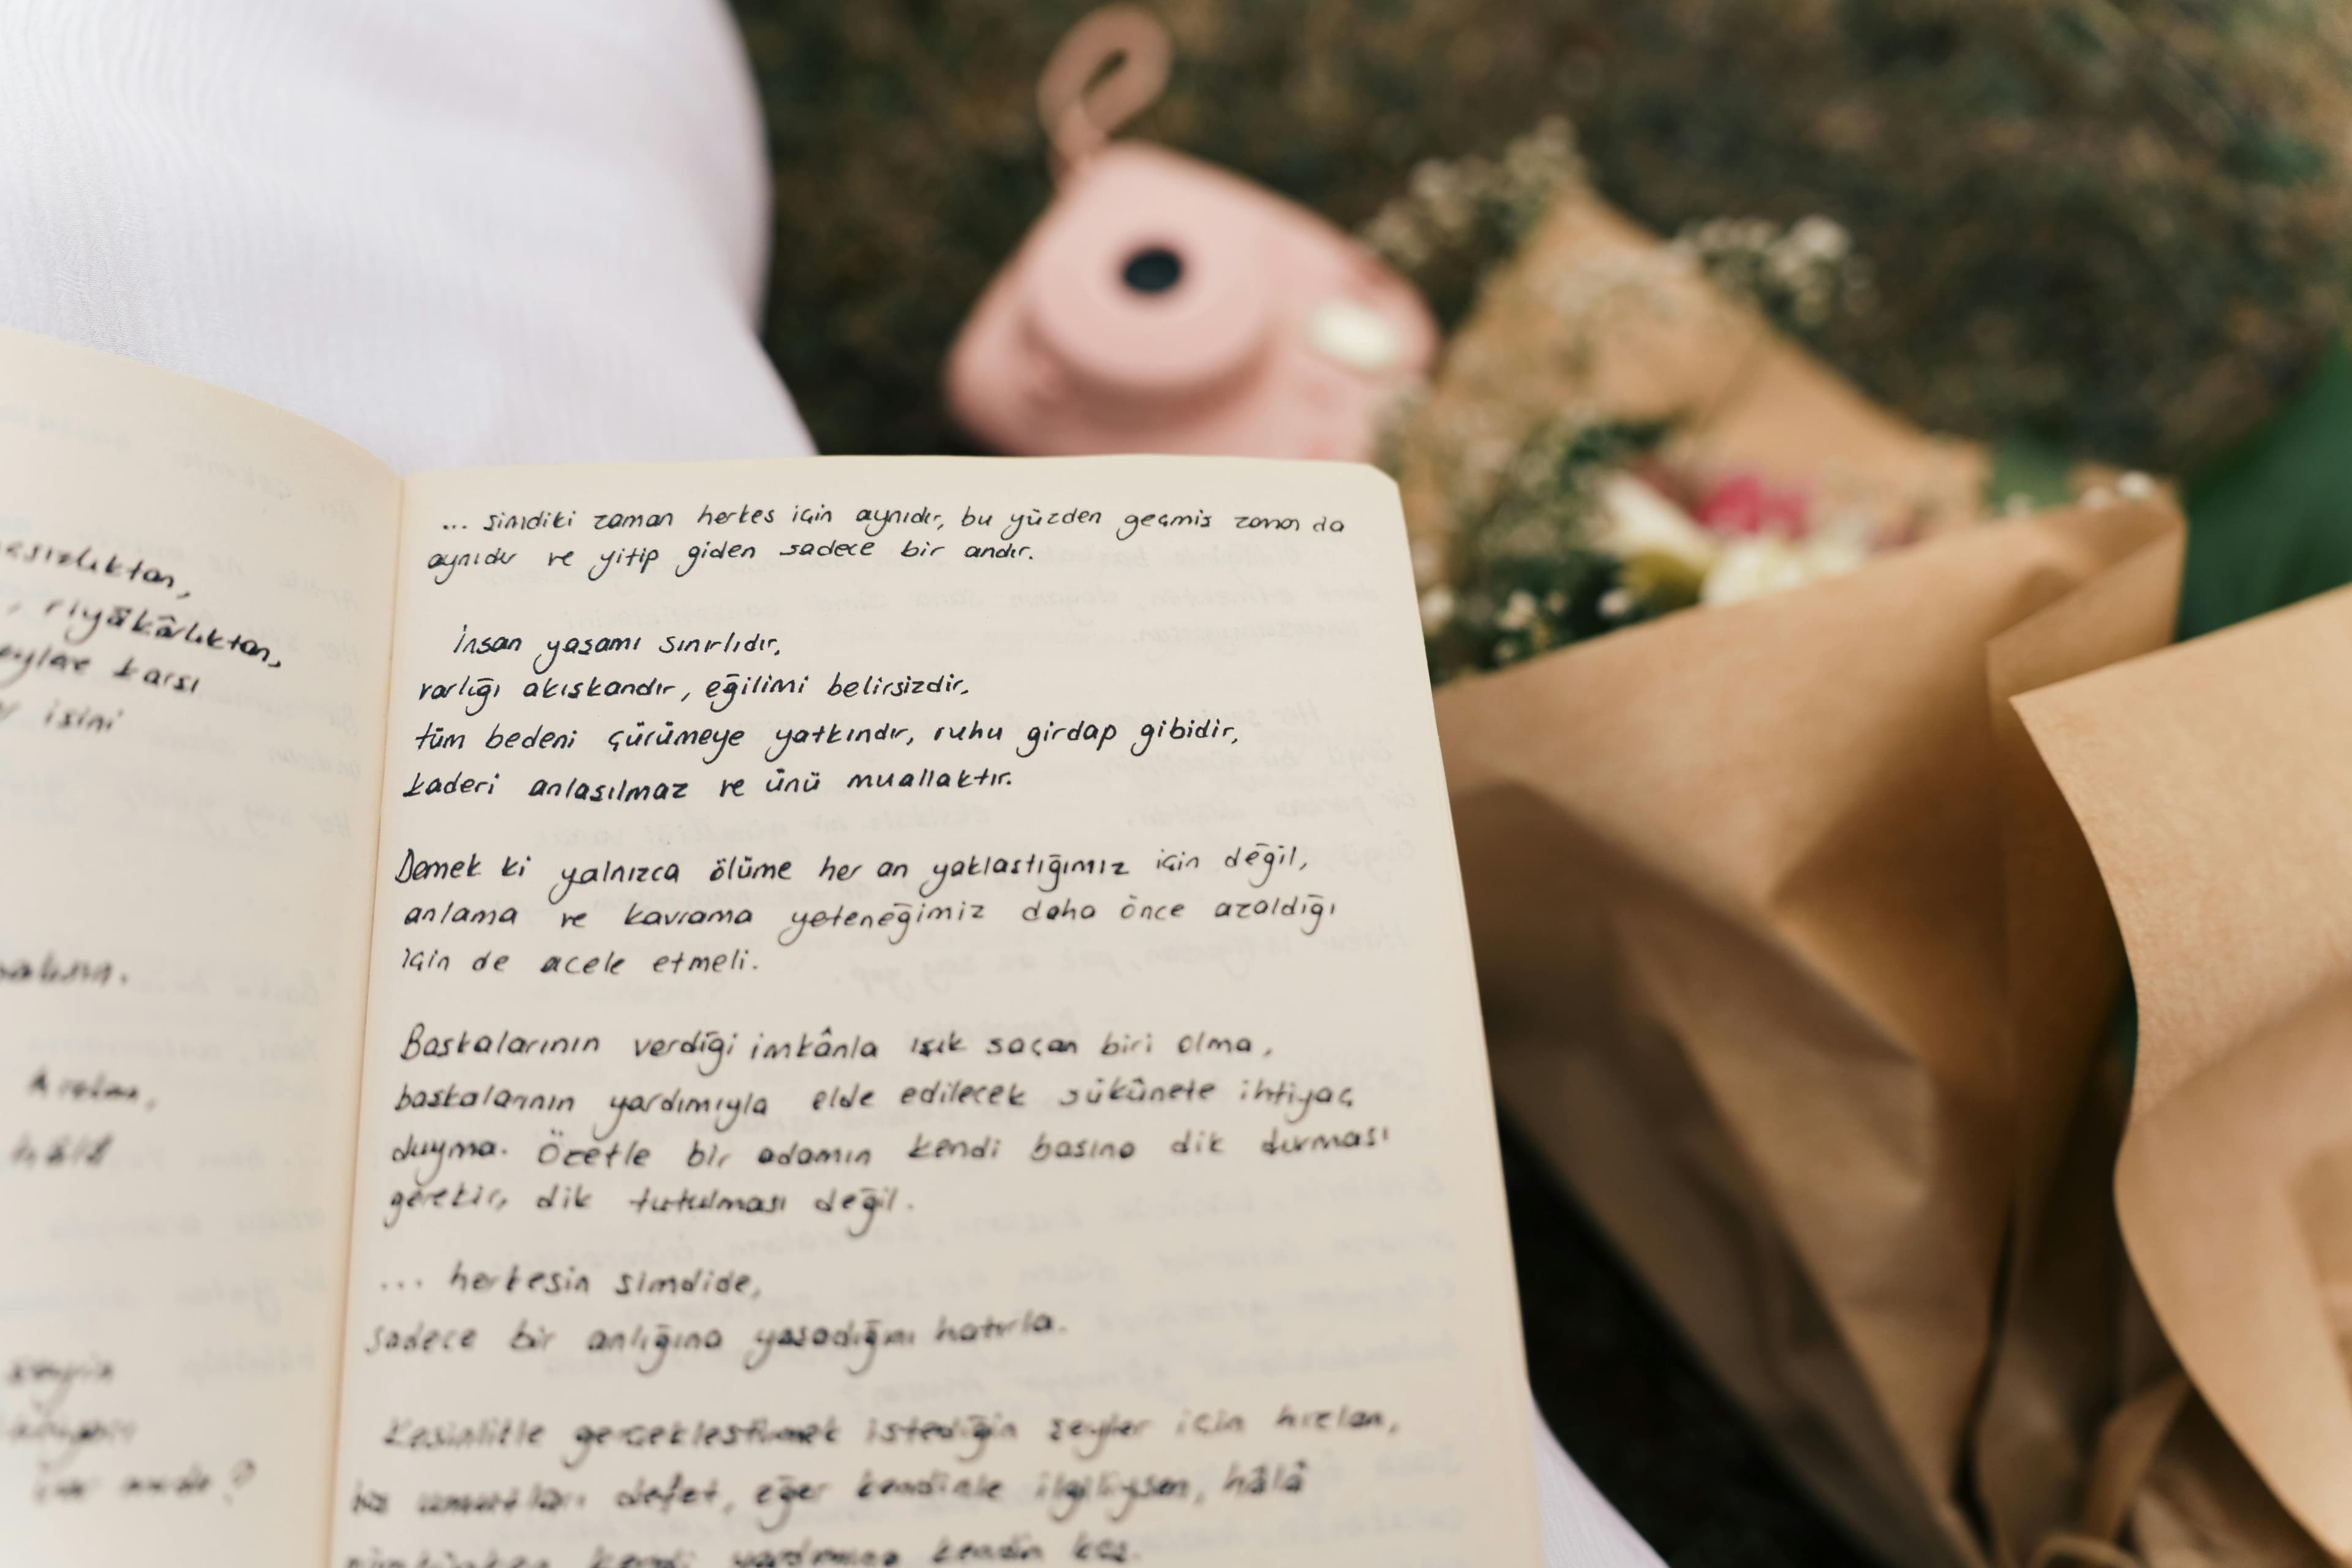 esizlıktan,
, riyâkârlıktan,
karşı
işini
... şimdiki zaman herkes için aynıdır, bu yüzden geçmiş zaman da
aynıdır ve yitip giden sadece bir andır.
İnsan yaşamı sınırlıdır,
varlığı akışkandır, eğilimi belirsizdir,
tüm bedeni çürümeye yatkındır, ruhu girdap gibidir,
kaderi anlaşılmaz ve ünü muallaktır.
Demek ki yalnızca ölüme her an yaklaştığımız için değil,
anlama ve kavrama yeteneğimiz daha önce azaldığı
için de acele etmeli.
Başkalarının verdiği imkânla ışık saçan biri olma,
başkalarının yardımıyla elde edilecek sükûnete ihtiyaç
duyma. Özetle bir adamın kendi başına dik durması
gerekir, dik tutulması değil.
... herkesin şimdide,
sadece bir anlığına yaşadığını hatırla.
Kesinlikle gerçekleştirmek istediğin şeyler için hızlan,
boş umutları defet, eğer kendinle ilgiliysen, hâlâ
mümkünken kendi yardımına kendin koş.